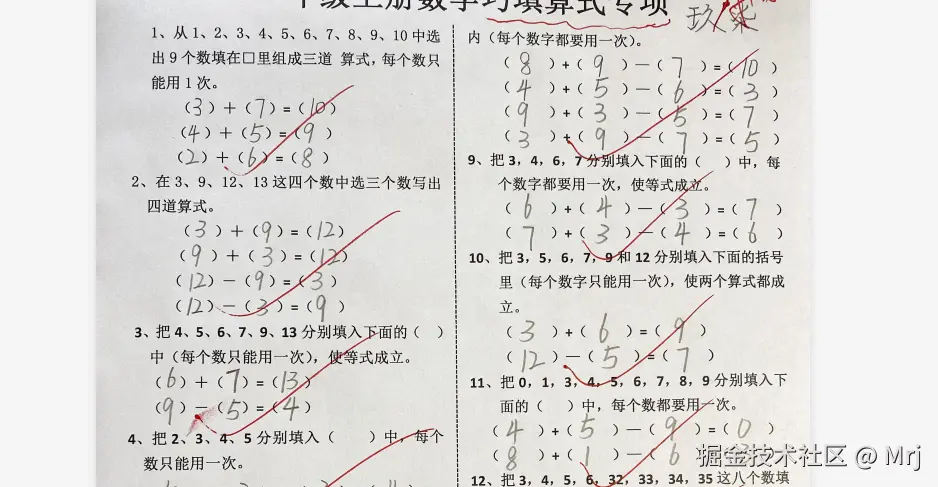 年级上册数学巧填算式专项
1、从1、2、3、4、5、6、7、8、9、10中选
出9个数填在□里组成三道 算式,每个数只
能用1次。
(3)+(7)=(10)
(4)+(5)=(9)
(2)+(6)=(8)
2、在3、9、12、13这四个数中选三个数写出
四道算式。
(3)+(9)=(12)
(9)+(3)=(12)
(12)-(9)=(3)
(12)-(3)=(9)
3、把4、5、6、7、9、13分别填入下面的( )
中(每个数只能用一次),使等式成立。
(6)+(7)=(13)
(9)-(5)=(4)
4、把2、3、4、5分别填入( )中,每个
数只能用一次。
内(每个数字都要用一次)。
(8)+(9)-(7)=(10)
(4)+(5)-(6)=(3)
(9)+(3)-(5)=(7)
(3)+(9)-(7)=(5)
9、把3,4,6,7分别填入下面的( )中,每
个数字都要用一次,使等式成立。
(6)+(4)-(3)=(7)
(7)+(3)-(4)=(6)
10、把3,5,6,7,9和12分别填入下面的括号
里(每个数字只能用一次),使两个算式都成
立。
(3)+(6)=(9)
(12)-(5)=(7)
11、把0,1,3,4,5,6,7,8,9分别填入下
面的( )中,每个数都要用一次。
(4)+(5)-(9)=(0)
(8)+(1)-(6
12、把3,4,5,6,32,33,34,35这八个数填
掘金技术社区 @ Mrj